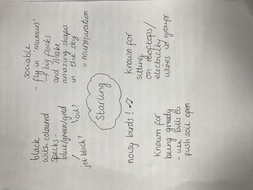 sociable
- fly in 'murmurs'
/ big flocks
and make
amazing shapes
in the sky
= murmuration
known for
sitting
on rooftops/
electricity
wires in groups
Known for
being greedy
- use bills to
push soil open
noisy birds!
black
with coloured
specks
blue/green/gold
oil?
jet black?
Starling